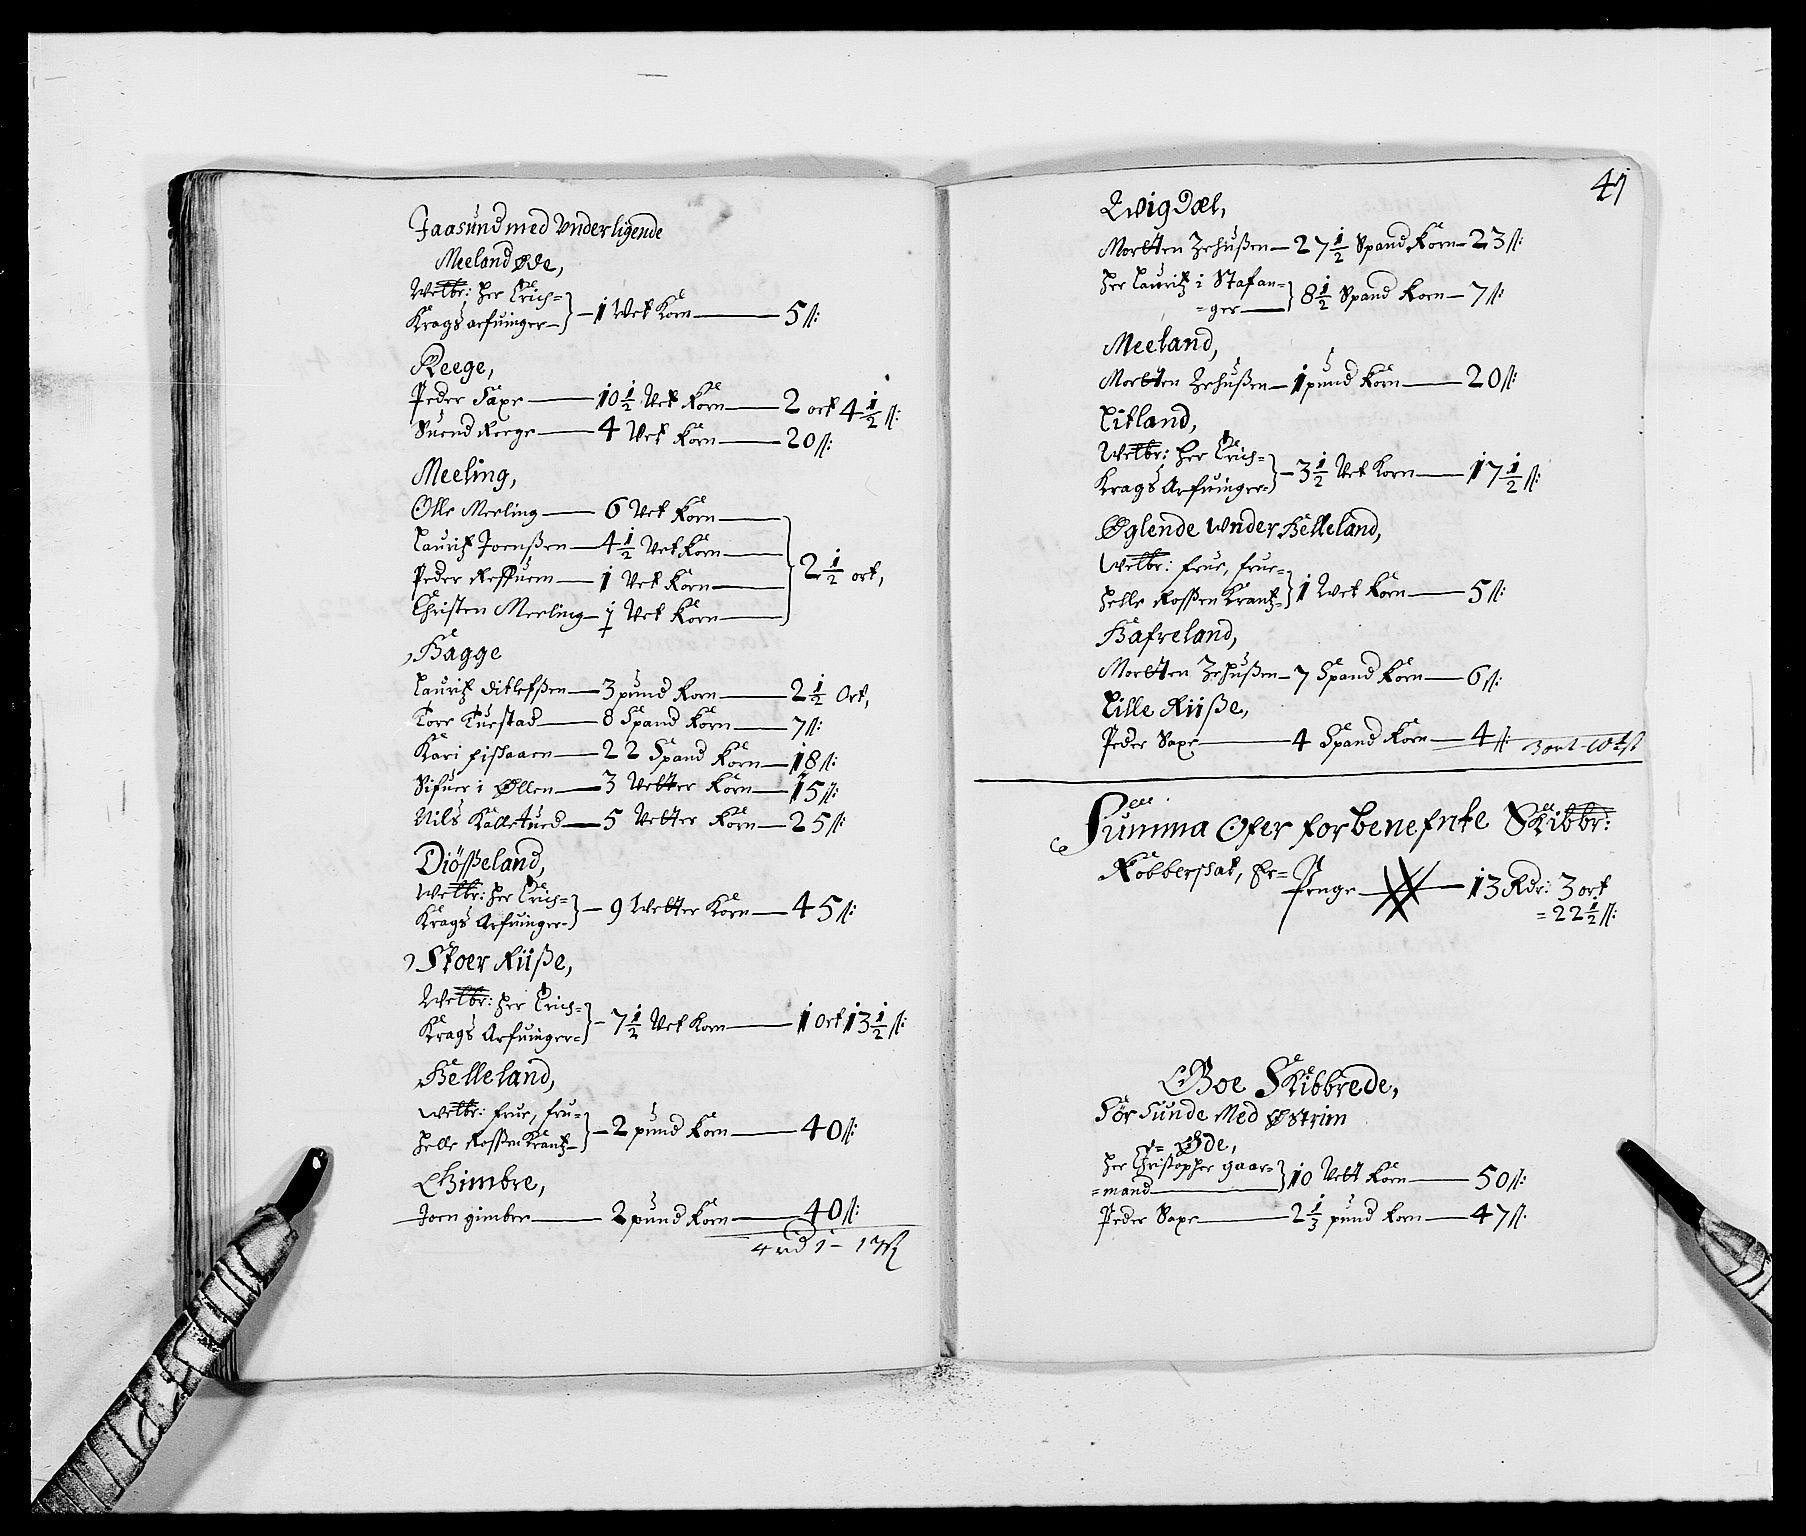 Jaasund med Vnderligende
Meeland Øde,
Welbr: Her Erich=
Krags arfuinger — 1 Vet Korn — 5 ß:
Reege,
Peder Saxe — 10 1/2 Vet Korn — 2 ort 4 1/2 ß:
Suend Reege — 4 Vet Korn — 20 ß:
Meeling,
Olle Meeling — 6 Vet Korn —
Lauritz Joenßen — 4 1/2 Vet Korn —
Peder Reffuem — 1 Vet Korn — 2 1/2 ort,
Christen Meeling — 1 Vet Korn —
Hagge
Lauritz Ditlefsen — 3 pund Korn — 2 1/2 Ort,
Tore Tuestad — 8 Spand Korn — 7 ß:
Kari fissaaen — 22 Spand Korn — 18 ß:
Sifuer i Øllen — 3 Vetter Korn — 15 ß:
Nils Kalletued — 5 Vetter Korn — 25 ß:
Diößeland,
Welbr: Her Erich=
Krags Arfuinger= — 9 Wetter Korn — 45 ß:
Stoer Riiße,
Welbr: Her Erich=
Krags Arfuinger= — 7 1/2 Vet Korn — 1 Ort 13 1/2 ß:
Helleland,
Welbr: frue, fru=
Helle Rossen Krantz — 2 pund Korn — 40 ß:
Gimbre,
Joen gimbre — 2 pund Korn — 40 ß:
4 rd 1 - 17 ß
41
Qvigdæl,
Mortten Zehußen — 27 1/2 Spand Korn — 23 ß:
Her Lauritz i Stafan=
=ger — 8 1/2 Spand Korn — 7 ß:
Meeland,
Mortten Zehußen — 1 pund Korn — 20 ß:
Litland,
Welbr: Her Erich=
Krags Arfuinger= — 3 1/2 Vet Korn — 17 1/2 ß:
Øglende Wnder Helleland,
Welbr: frue, frue=
Helle Rossen Krantz= — 1 Wet Korn — 5 ß:
Hafreland,
Mortten Zehußen — 7 Spand Korn — 6 ß:
Lille Riiße,
Peder Saxe — 4 Spand Korn — 4 ß: 3 ort 10 1/2 ß
Summa Ofer forbenefnte Skibbr:
Kobberskat, Er=
Penge — 13 Rdr: 3 ort
=22 1/2 ß:
Goe Skibbrede,
Sör Sunde Med Østrim
Øde,
Her Christopher gaar=
=mand — 10 Vett Korn — 50 ß:
Peder Saxe — 2 1/3 pund Korn — 47 ß: